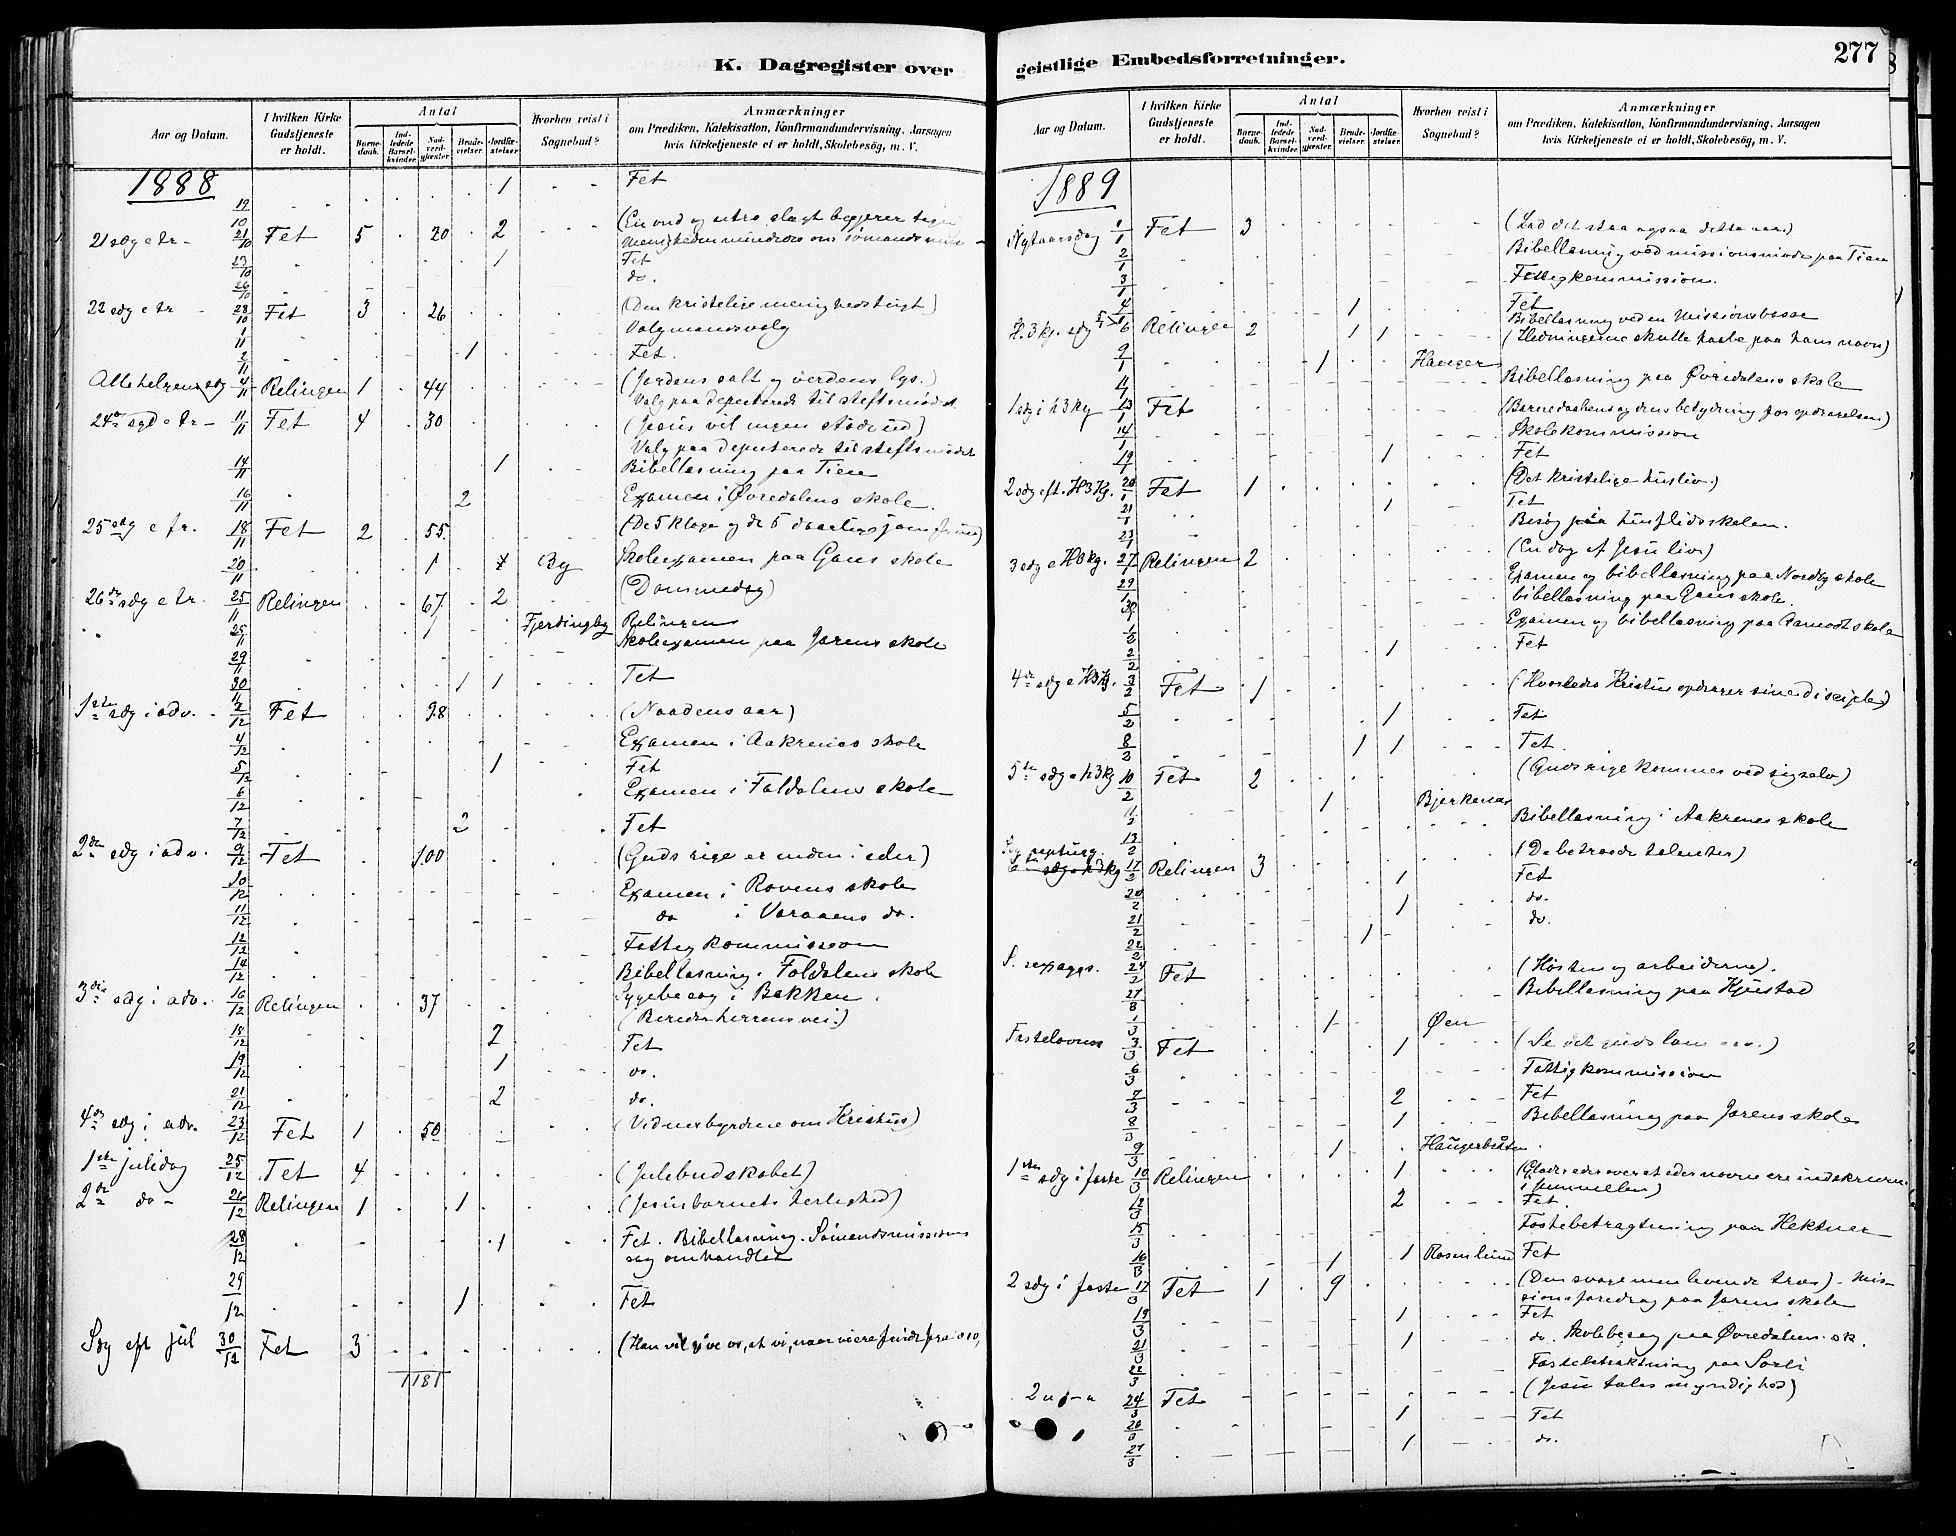 K. Dagregister over
Aar og Datum. I hvilken Kirke Gudstjeneste er holdt. Antal Hvorhen reist i Sognebud? Anmærkninger
om Prædiken, Katekisation, Konfirmandundervisning, Aarsagen
hvis Kirketjeneste ei er holdt, Skolebesög, m. V.
Barnedaab. Indledede Barselkvinder. Nadverdgjester. Brudevielser. Jordfæstelser.
1888
19/10 1 Fet
21 sdg e tr - 21/10 Fet 5 20 2
23/10 1 Fet
26/10 do.
22 sdg e tr 28/10 Fet 3 26 (Den kristelige menighedstugt)
1/11 Valgmandsvalg
2/11 1 Fet.
Allehelgensdg 4/11 Relingen 1 44 (Jordens salt og verdens lys.)
Valg paa deputerede til stiftsmødet
24de sgd e tr - 11/11 Fet 4 30 (Jesus vil ingen støde ud)
Valg paa deputerede til stiftsmødet
14/11 1 Bibellæsning paa Tien
16/11 2 Examen i Øvredalens skole.
25 sdg e tr. 18/11 Fet 2 55
20/11 1 By Skoleexamen paa Gans skole
26de sdg e tr. 25/11 Relingen 67 2 (Dommedag)
25/11 1 Fjerdingby Relingen
29/11 Skoleexamen paa Jarens skole
30/11 1 1 Fet
1ste sdg i adv. - 2/12 Fet 98 (Naadens aar)
4/12 Examen i Aakrenes skole
5/12 1 Fet
6/12 Examen i Faldalens skole
7/12 2 Fet
2den sdg i adv. 9/12 Fet 100 (Guds rige er inden i eder)
10/12 Examen i Rovens skole
11/12 do i Varaaens do.
12/12 Fattigkommission
14/12 Bibellæsning. Faldalens skole
3die sdg i adv. 16/12 Relingen 37 Sygebesøg i Bakken
(Bered herrens vei.)
18/12 2 Fet
19/12 1 do.
21/12 2 do.
4de sdg i adv. 23/12 Fet 1 50 (Vidnesbyrdene om Kristus)
1ste juledag 25/12 Fet 4 (Julebudskabet)
2de do - 26/12 Relingen 1 1 (Jesusbarnets herlighed)
28/12 1 Fet. Bibellæsning. Sømandsmissions
sag omhandlet
29/12 1 Fet
Sdg eft jul 30/12 Fet 3
1181
geistlige Embedsforretninger.
277
Aar og Datum. I hvilken Kirke Gudstjeneste er holdt. Antal Hvorhen reist i Sognebud? Anmærkninger
om Prædiken, Katekisation, Konfirmandundervisning, Aarsagen
hvis Kirketjeneste ei er holdt, Skolebesög, m. V.
Barnedaab. Indledede Barselkvinder. Nadverdgjester. Brudevielser. Jordfæstelser.
1889
Nytaarsdag 1/1 Fet 3 (Lad det staa ogsaa dette aar)
2/1 Bibellæsning ved missionsmøde paa Tien
3/1 Fattigkommission.
4/1 1 Fet
Bibellæsning ved en missionsbasar
H. 3 kg. sdg 6/1 Relingen 2 1 1 (Hedningerne skulle haabe paa hans navn)
9/1 1 Hauger
11/1 Bibellæsning paa Øvredalens skole
1 sdg i h3kg 13/1 Fet (Barnedaabens og dens betydning for opdragelsen)
14/1 Skolekommission
19/1 1 Fet
2 sdg eft. H3Kg. 20/1 Fet 1 (Det kristelige husliv.)
21/1 1 Fet
23/1 Besøg paa husflidsskolen.
3 sdg e H3kg. 27/1 Relingen 2 (En dag af Jesu liv)
29/1 Examen og bibellæsning paa Nordby skole
30/1 bibellæsning paa Gans skole.
1/2 Examen og bibellæsning paa Aamodt skole
2/2 1 Fet
4de sdg e H3Kg. 3/2 Fet 1 (Hvorledes Kristus opdrager sine disciple)
5/2 1 Fet
8/2 1 1 Fet.
5te sdg e h3kg 10/2 Fet 2 (Guds rige kommer ved sig selv)
11/2 1 Bjerkenæs
13/2 Bibellæsning i Aakrenes skole
Sdg septuag. 17/2 Relingen 3 (De betroede talenter)
20/2 1 Fet
21/2 1 do.
22/2 1 do.
S. sexages. 24/2 Fet (Høsten og arbeiderne).
27/2 Bibellæsning paa Hjustad
1/3 1 Øen
Fastelavns 3/3 Fet 1 (Se det guds lam)
6/3 Fattigkommission
7/3 2 Fet
8/3 1 Bibellæsning paa Jarens skole
9/3 1
1ste sdg i faste 10/3 Relingen 1 (Glæd eder over at eders navne ere indskrevne
i himmelen)
12/3 2 Fet
15/3 Fastebetragtning paa Hektner
16/3 1 1 Rosenlund Fet
2 sdg i faste 17/3 Fet 1 9
sionsforedrag paa Jarens skole
19/3 1 Fet
21/3 1 do. Skolebesøg paa Øvredalens sk.
22/3 Fastebetraktning paa Sørli
24/3 Fet (Jesu tales myndighed)
1 Fet
27/3 1 do.